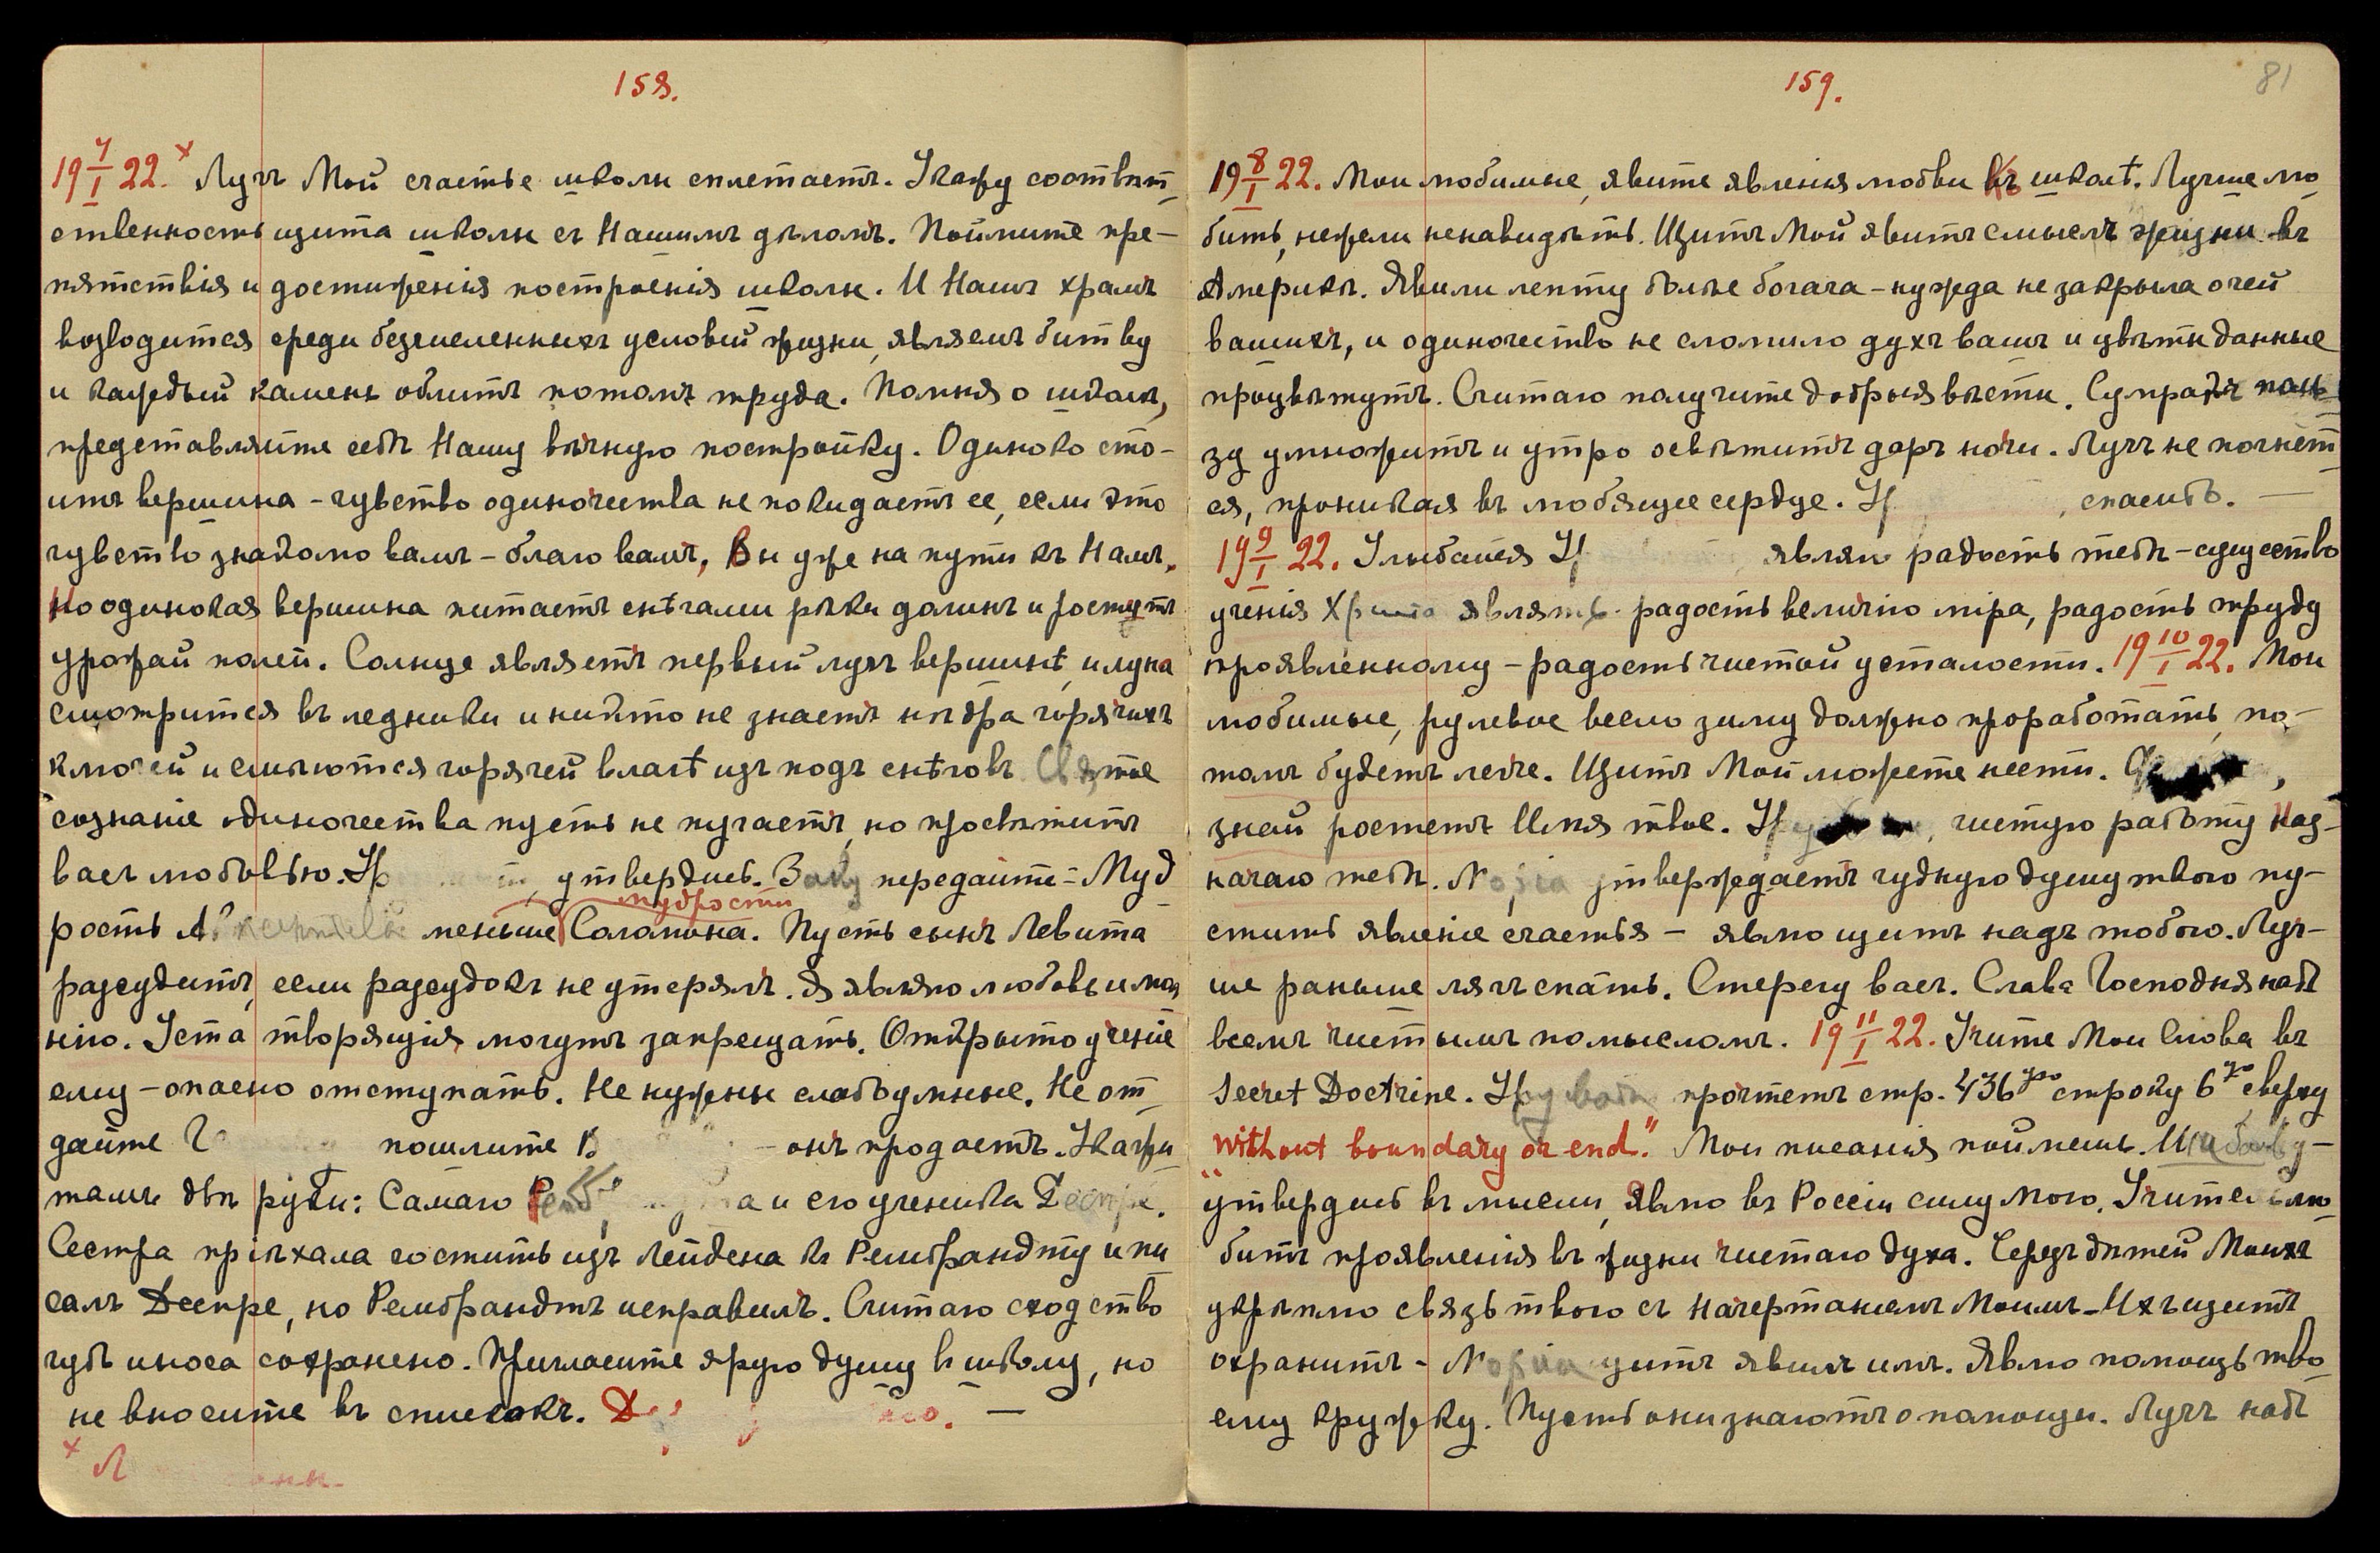 158.
19 7/I 22.× Лучъ Мой счастье школы сплетаетъ. Укажу соотвѣт-
ственность щита школы съ Нашимъ дѣломъ. Поймите пре-
пятствія и достиженія построенія школы. И Нашъ храмъ
возводится среди безчисленныхъ условій жизни, являемъ битву
и каждый камень облитъ потомъ труда. Помня о школѣ,
представляйте себѣ Нашу вѣчную постройку. Одиноко сто-
итъ вершина – чувство одиночества не покидаетъ ее, если это
чувство знакомо вамъ – благо вамъ, Вы уже на пути къ Намъ,
Но одинокая вершина питаетъ снѣгами рѣки долинъ и ростутъ
урожаи полей. Солнце являетъ первый лучъ вершинѣ, и луна
смотрится въ ледники и никто не знаетъ нѣдра горячихъ
ключей и смѣются горячей влагѣ изъ подъ снѣговъ. Святое
сознаніе одиночества пусть не пугаетъ, но просвѣтитъ
васъ любовью. утвердись. передайте – Муд-
рость меньше мудрости Соломона. Пусть сынъ Левита
разсудитъ, если разсудокъ не утерялъ. Я являю любовь и мол
нію. Уста творящія могутъ запрещать. Открыто ученіе
ему – опасно отступать. Не нужны слабоумные. Не от-
дайте пошлите – онъ продастъ.
тамъ двѣ руки: Самаго и его ученика
Сестра пріѣхала гостить изъ Лейдена къ Рембрандту и пи
салъ Деспре, но Рембрандтъ исправилъ. Считаю сходство
губъ и носа сохранено. Пригласите ярую душу въ школу, но
не вносите въ списокъ. —
×
159.
81
19 8/I 22. Мои любимые, явите явленія любви къ школѣ. Лучше лю
бить, нежели ненавидѣть. Щитъ Мой явитъ смыслъ жизни въ
Америкѣ. Явили лепту болѣе богача – нужда не закрыла очей
вашихъ, и одиночество не сломило духъ вашъ и цвѣты данные
процвѣтутъ. Считаю получите добрыя вѣсти. поль-
зу умножитъ и утро освѣтитъ даръ ночи. Лучъ не погнет-
ся, проникая въ любящее сердце. , спасибо. —
19 9/I 22. Улыбайся являю радость тебѣ – существо
ученія являть радость величію міра, радость труду
проявленному – радость чистой усталости. 19 10/I 22. Мои
любимые, рулевое весло зиму должно проработать, по-
томъ будетъ легче. Щитъ Мой можете нести. ,
знай ростетъ Имя твое. , чистую работу наз-
начаю тебѣ. утверждаетъ чудную душу твою пу-
стить явленіе счастья – явлю щитъ надъ тобою. Луч-
ше раньше лягъ спать. Стерегу васъ. Слава Господня надъ
всемъ чистымъ помысломъ. 19 11/I 22. Учите Мои Слова въ
Secret Doctrine. прочтетъ стр. 436ую строку 6ую сверху
“without boundary or end.” Мои писанія поймешь. –
утвердись въ мысли, явлю въ Россіи силу мою. лю-
битъ проявленія въ жизни чистаго духа. Середъ дѣтей Моихъ
укрѣплю связь твою съ начертаніемъ Моимъ – Ихъ щитъ
охранитъ – щитъ явилъ имъ. Явлю помощь тво-
ему кружку. Пусть они знаютъ о помощи. Лучъ надъ